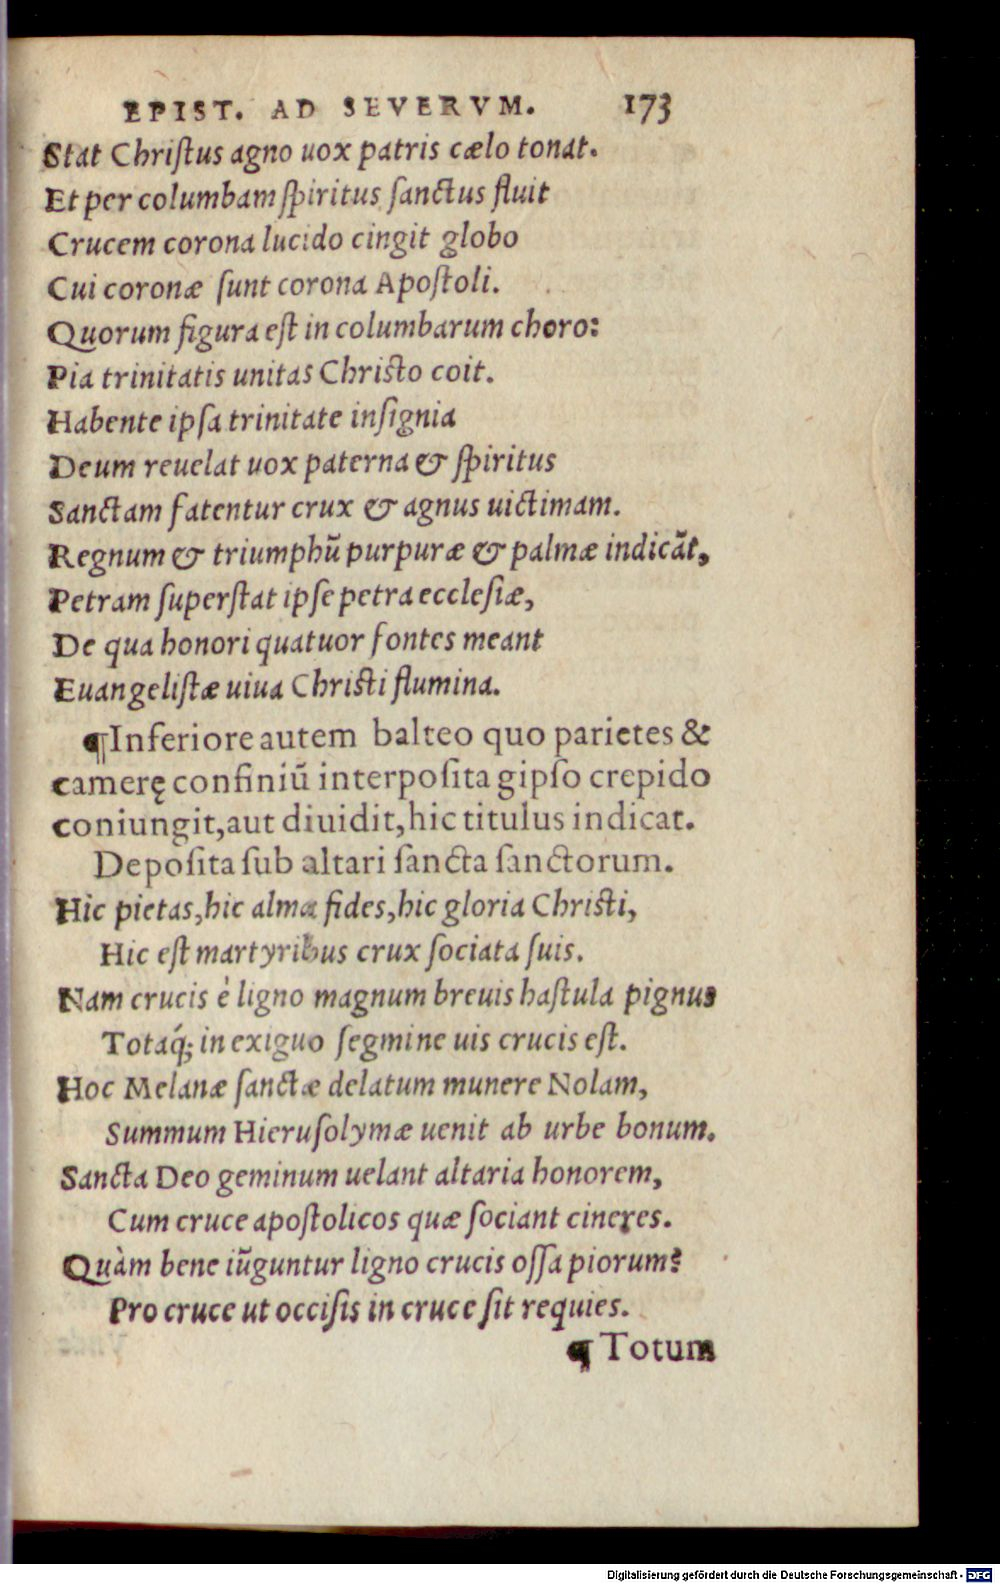 EPIST. AD SEVERVM. 173
Stat Chriſtus agno uox patris cælo tonat.
Et per columbam ſpiritus ſanctus fluit
Crucem corona lucido cingit globo
Cui coronæ ſunt corona Apoſtoli.
Quorum figura eſt in columbarum choro:
Pia trinitatis unitas Chriſto coit.
Habente ipſa trinitate inſignia
Deum reuelat uox paterna & ſpiritus
Sanctam fatentur crux & agnus uictimam.
Regnum & triumphũ purpuræ & palmæ indicãt,
Petram ſuperſtat ipſe petra eccleſiæ,
De qua honori quatuor fontes meant
Euangeliſtæ uiua Chriſti flumina.
¶Inferiore autem balteo quo parietes &
camerę confiniũ interpoſita gipſo crepido
coniungit,aut diuidit,hic titulus indicat.
Depoſita ſub altari ſancta ſanctorum.
Hìc pietas,hic alma fides,hic gloria Chriſti,
Hic eſt martyribus crux ſociata ſuis.
Nam crucis è ligno magnum breuis haſtula pignus
Totaq́; in exiguo ſegmine uis crucis eſt.
Hoc Melanæ ſanctæ delatum munere Nolam,
Summum Hieruſolymæ uenit ab urbe bonum.
Sancta Deo geminum uelant altaria honorem,
Cum cruce apoſtolicos quæ ſociant cineres.
Quàm bene iũguntur ligno crucis oſſa piorum?
Pro cruce ut occiſis in cruce ſit requies.
¶ Totum
Digitalisierung gefördert durch die Deutsche Forschungsgemeinschaft - DFG